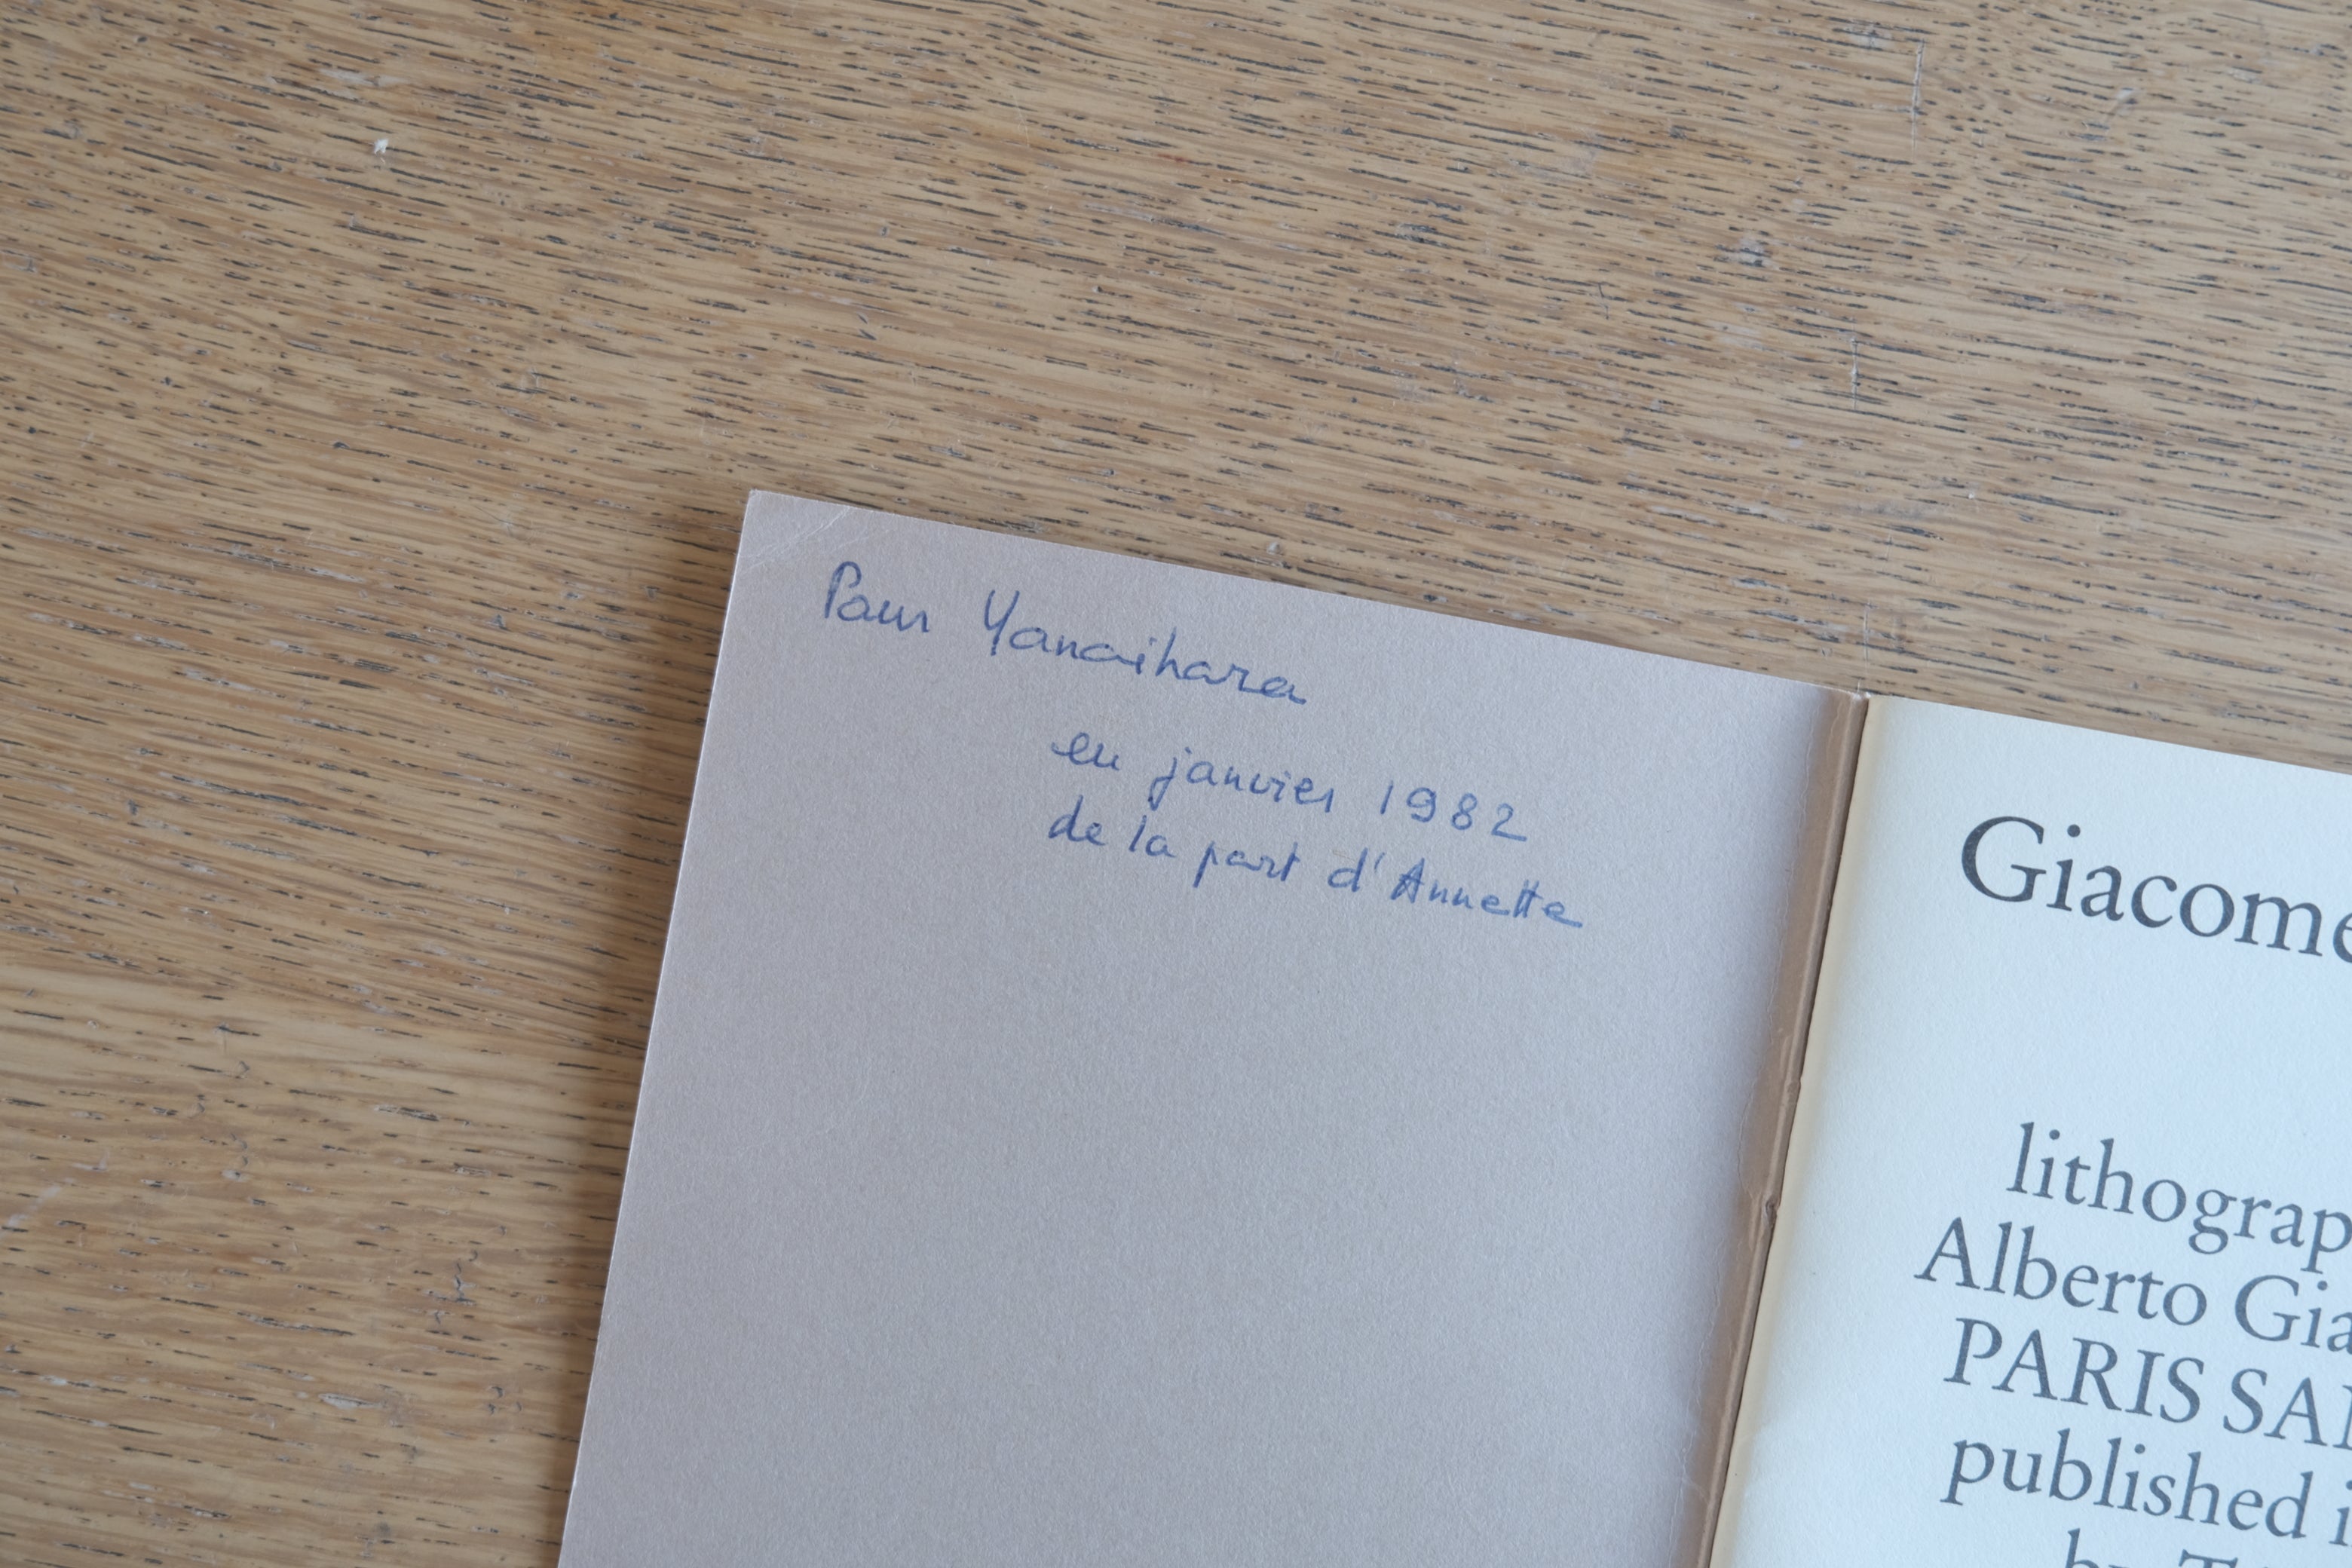 Pour Yanaihara
en janvier 1982
de la part d'Annette
Giacome
lithograp
Alberto Gia
PARIS SA
published i
by T